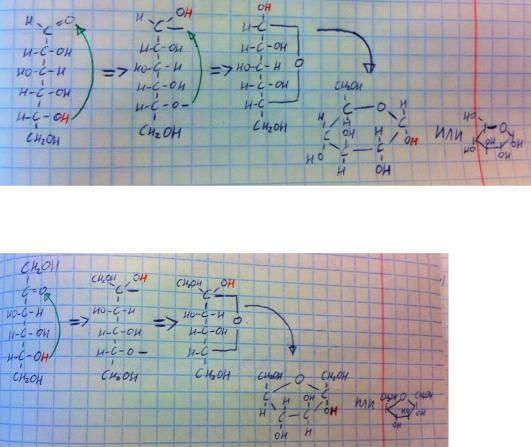 H C =O
H-C-OH
HO-C-H
H-C-OH
H-C-OH
CH₂OH
=>
H OH
C
H-C-OH
HO-C-H
H-C-OH
H-C-O-
CH₂OH
=>
OH
H-C
H-C-OH
HO-C-H O
H-C-OH
H-C
CH₂OH
CH₂OH
C O H
H H C
C OH H OH
HO C C
H OH
ИЛИ
HO O
HO OH OH
OH
CH₂OH
C=O
HO-C-H
H-C-OH
H-C-OH
CH₂OH
=>
CH₂OH OH
C
HO-C-H
H-C-OH
H-C-O-
CH₂OH
=>
CH₂OH OH
C
HO-C-H O
H-C-OH
H-C
CH₂OH
CH₂OH O CH₂OH
C H OH C
H C C OH
OH H
ИЛИ
CH₂OH O CH₂OH
HO OH
OH